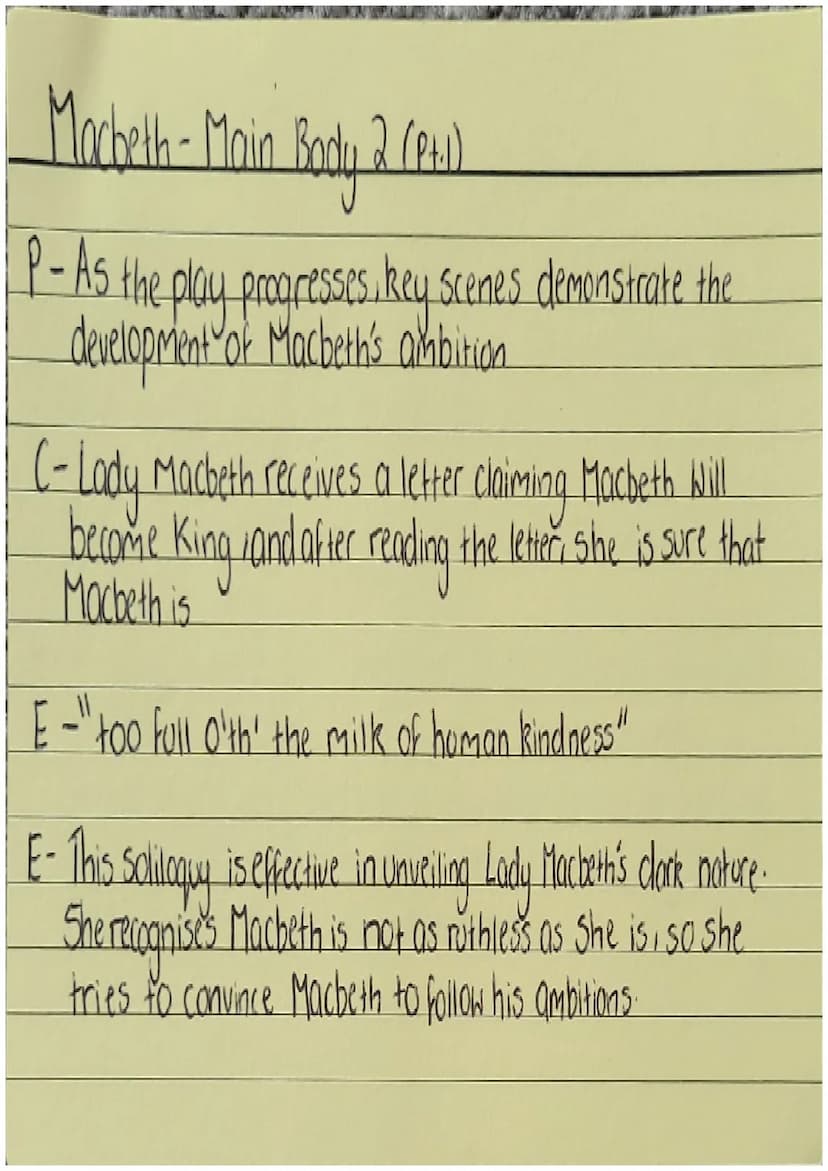 Macbeth - Main Body 2 (Pt.1)
P - As the play progresses, key scenes demonstrate the
development of Macbeth's ambition
C - Lady Macbeth receives a letter claiming Macbeth Will
become King, and after reading the letter, she is sure that
Macbeth is
E - "too full o'th' the milk of human kindness"
E - This soliloquy is effective in unveiling Lady Macbeth's dark nature.
She recognises Macbeth is not as ruthless as she is, so she
tries to convince Macbeth to follow his ambitions.